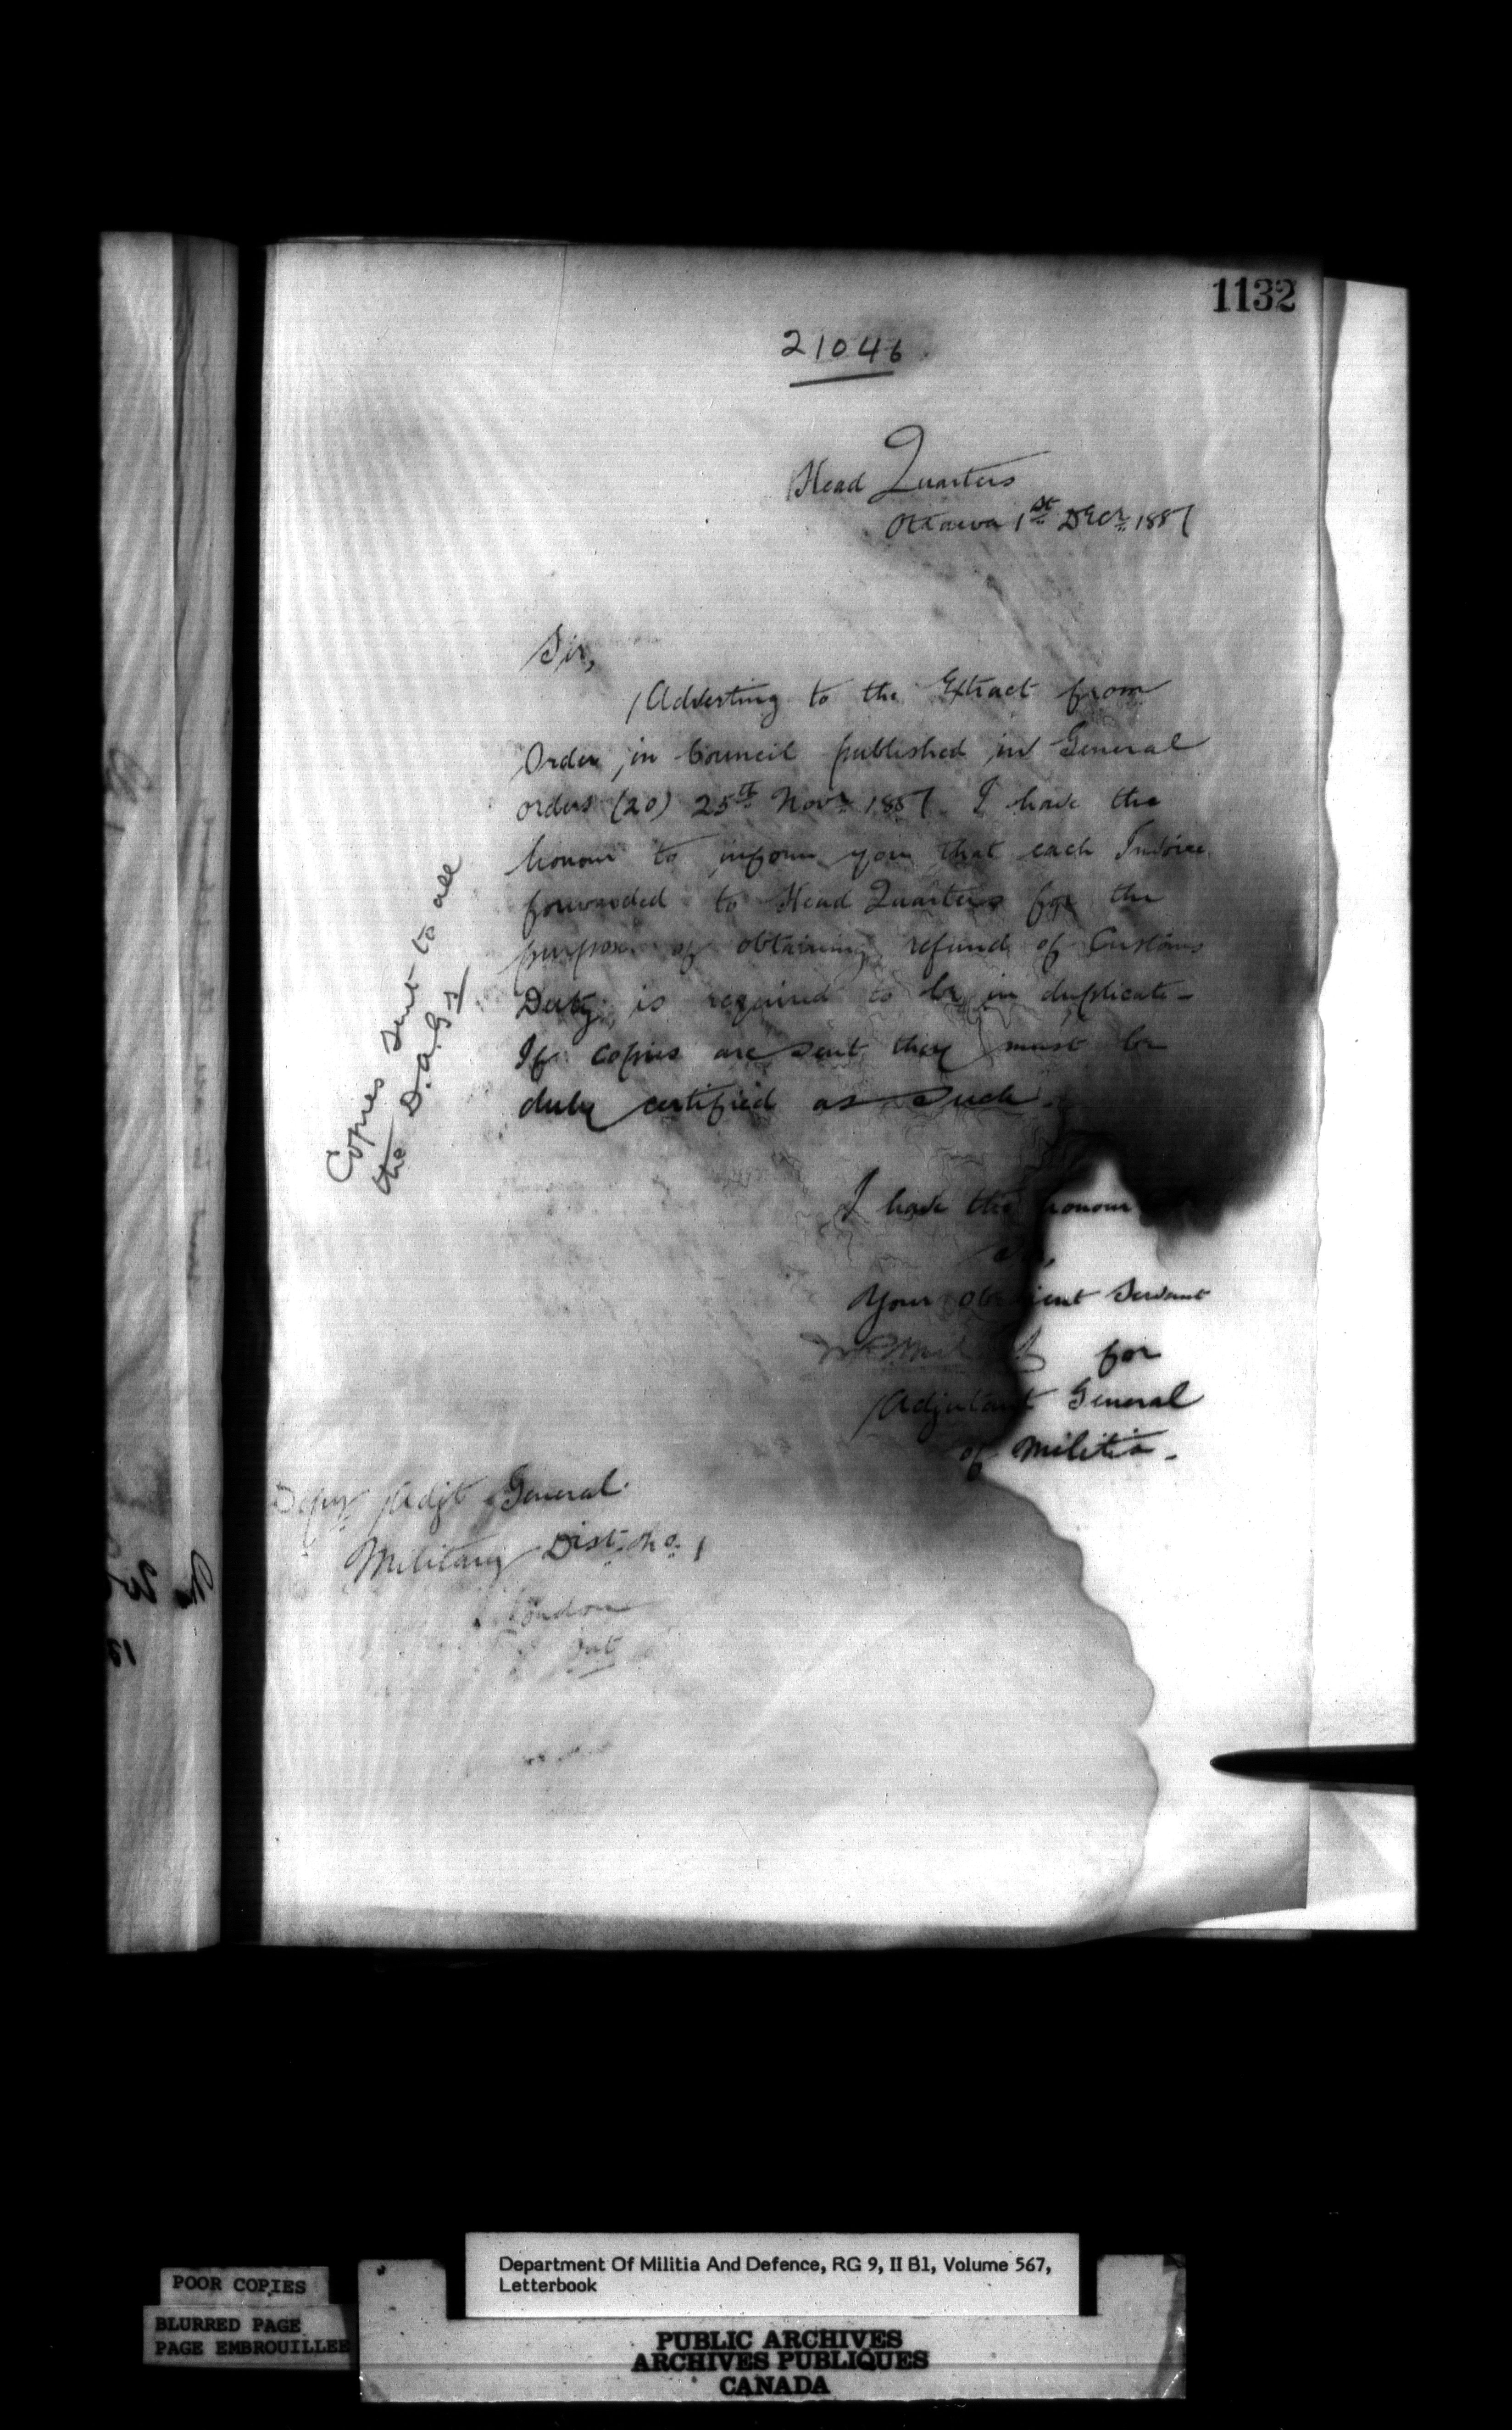 1132
21046
Head Quarters
Ottawa 1st Decr. 1887
Sir,
Adverting to the Extract from
Order in Council published in General
orders (20) 25th Novr 1887 I have the
honour to inform you that each Invoice
forwarded to Head Quarters for the
purpose of obtaining refund of Customs
Duty is required to be in duplicate -
If copies are sent they must be
duly certified as such -
Copies sent to all
the D.A.G.s
I have the honour
Sir,
Your obedient Servant
for
Adjutant General
of Militia -
Depy Adjt General
Military Dist. No. 1
London
Ont
Department Of Militia And Defence, RG 9, II B1, Volume 567,
Letterbook
POOR COPIES
BLURRED PAGE
PAGE EMBROUILLEE
PUBLIC ARCHIVES
ARCHIVES PUBLIQUES
CANADA